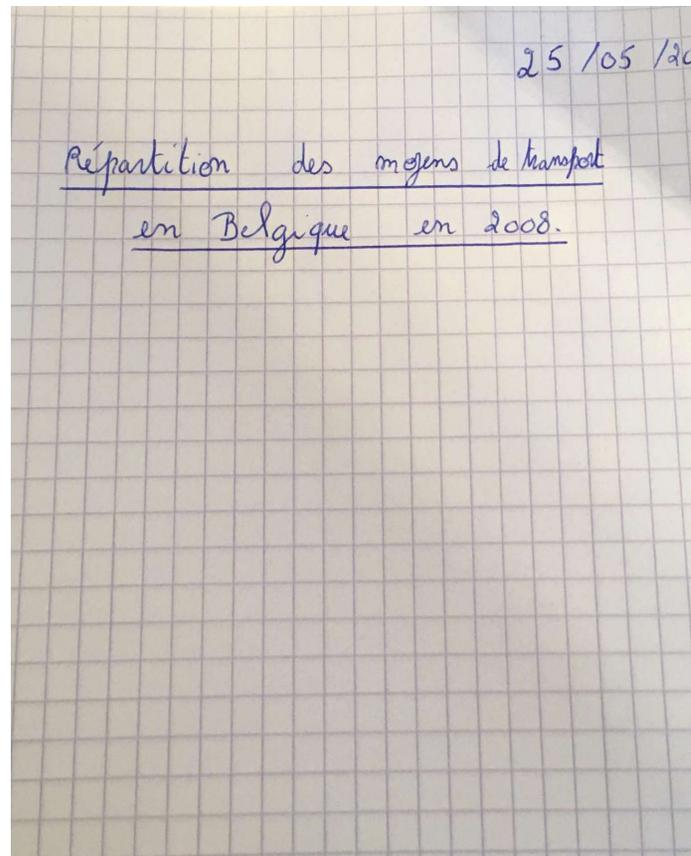 25 /05 /20
Répartition des moyens de transport
en Belgique en 2008.